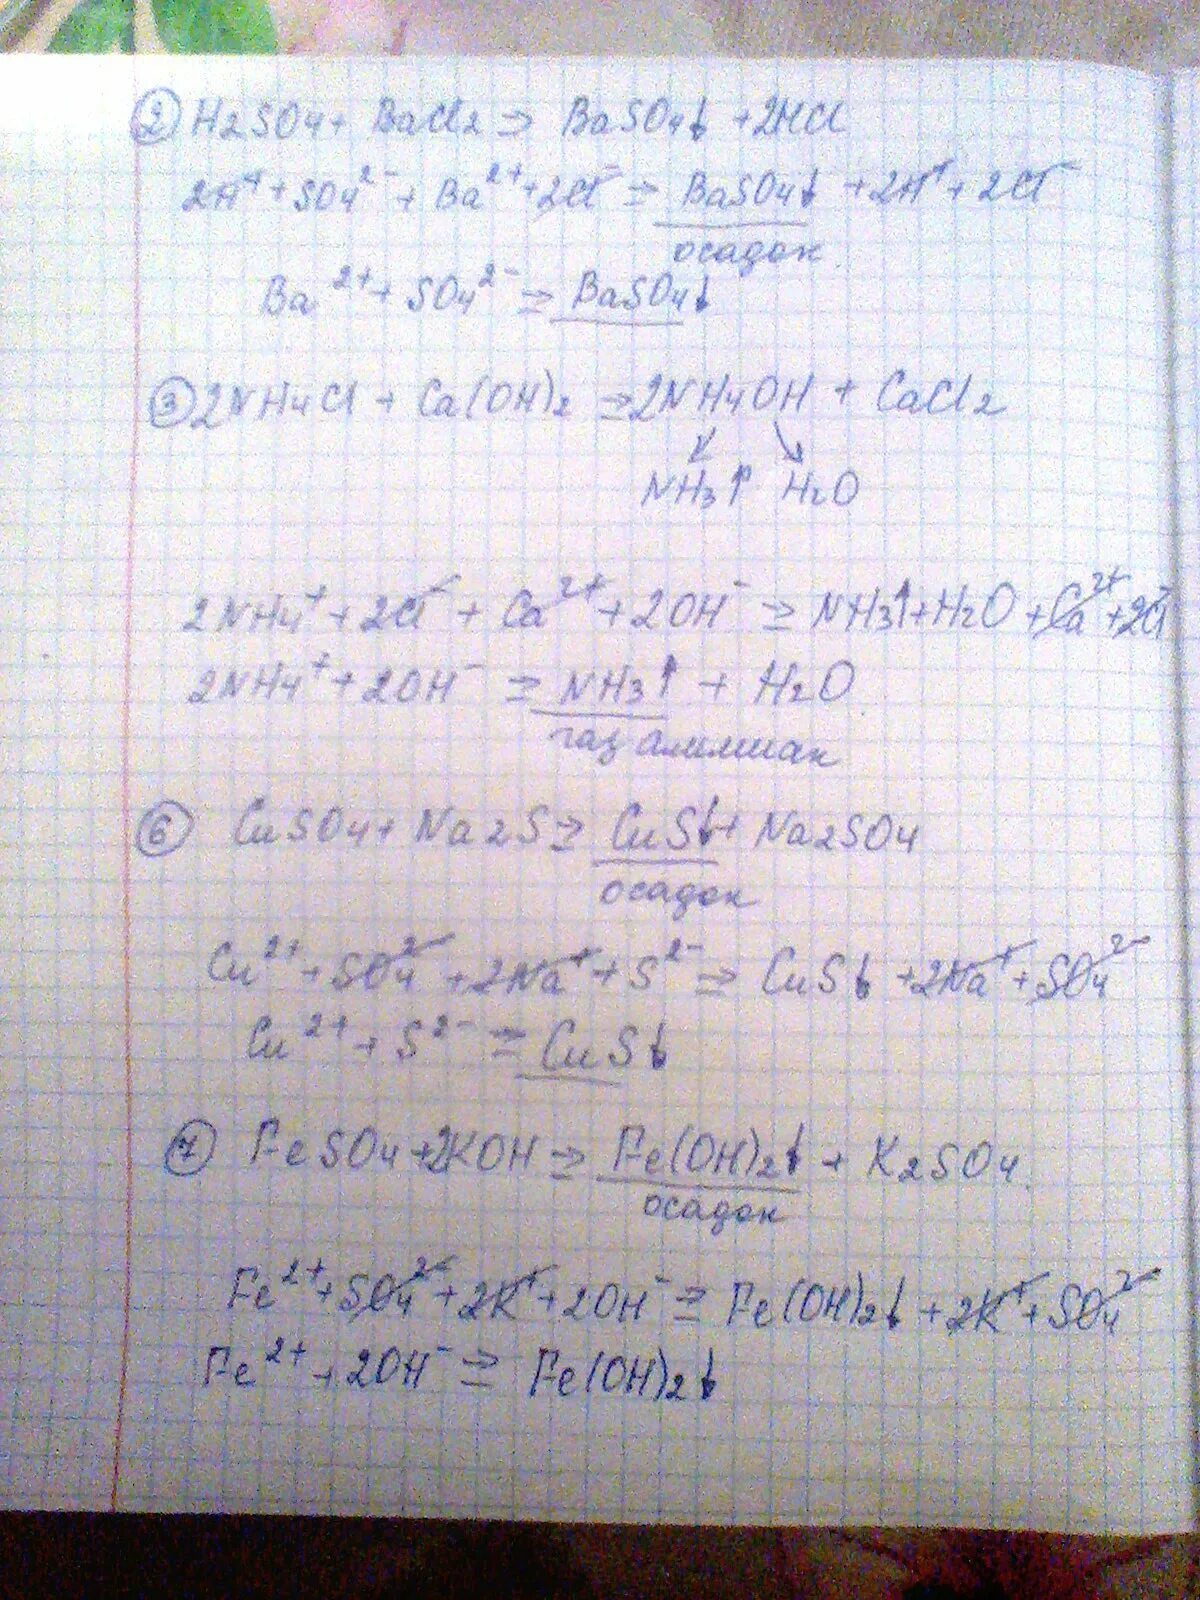 ② H2SO4 + BaCl2 ⇒ BaSO4↓ + 2HCl
2H⁺ + SO4²⁻ + Ba²⁺ + 2Cl⁻ ⇒ BaSO4↓ + 2H⁺ + 2Cl⁻
осадок
Ba²⁺ + SO4²⁻ ⇒ BaSO4↓
③ 2NH4Cl + Ca(OH)2 ⇒ 2NH4OH + CaCl2
NH3↑ H2O
2NH4⁺ + 2Cl⁻ + Ca²⁺ + 2OH⁻ ⇒ NH3↑ + H2O + Ca²⁺ + 2Cl⁻
2NH4⁺ + 2OH⁻ ⇒ NH3↑ + H2O
газ аммиак
⑥ CuSO4 + Na2S ⇒ CuS↓ + Na2SO4
осадок
Cu²⁺ + SO4²⁻ + 2Na⁺ + S²⁻ ⇒ CuS↓ + 2Na⁺ + SO4²⁻
Cu²⁺ + S²⁻ ⇒ CuS↓
⑦ FeSO4 + 2KOH ⇒ Fe(OH)2↓ + K2SO4.
осадок
Fe²⁺ + SO4²⁻ + 2K⁺ + 2OH⁻ ⇒ Fe(OH)2↓ + 2K⁺ + SO4²⁻
Fe²⁺ + 2OH⁻ ⇒ Fe(OH)2↓